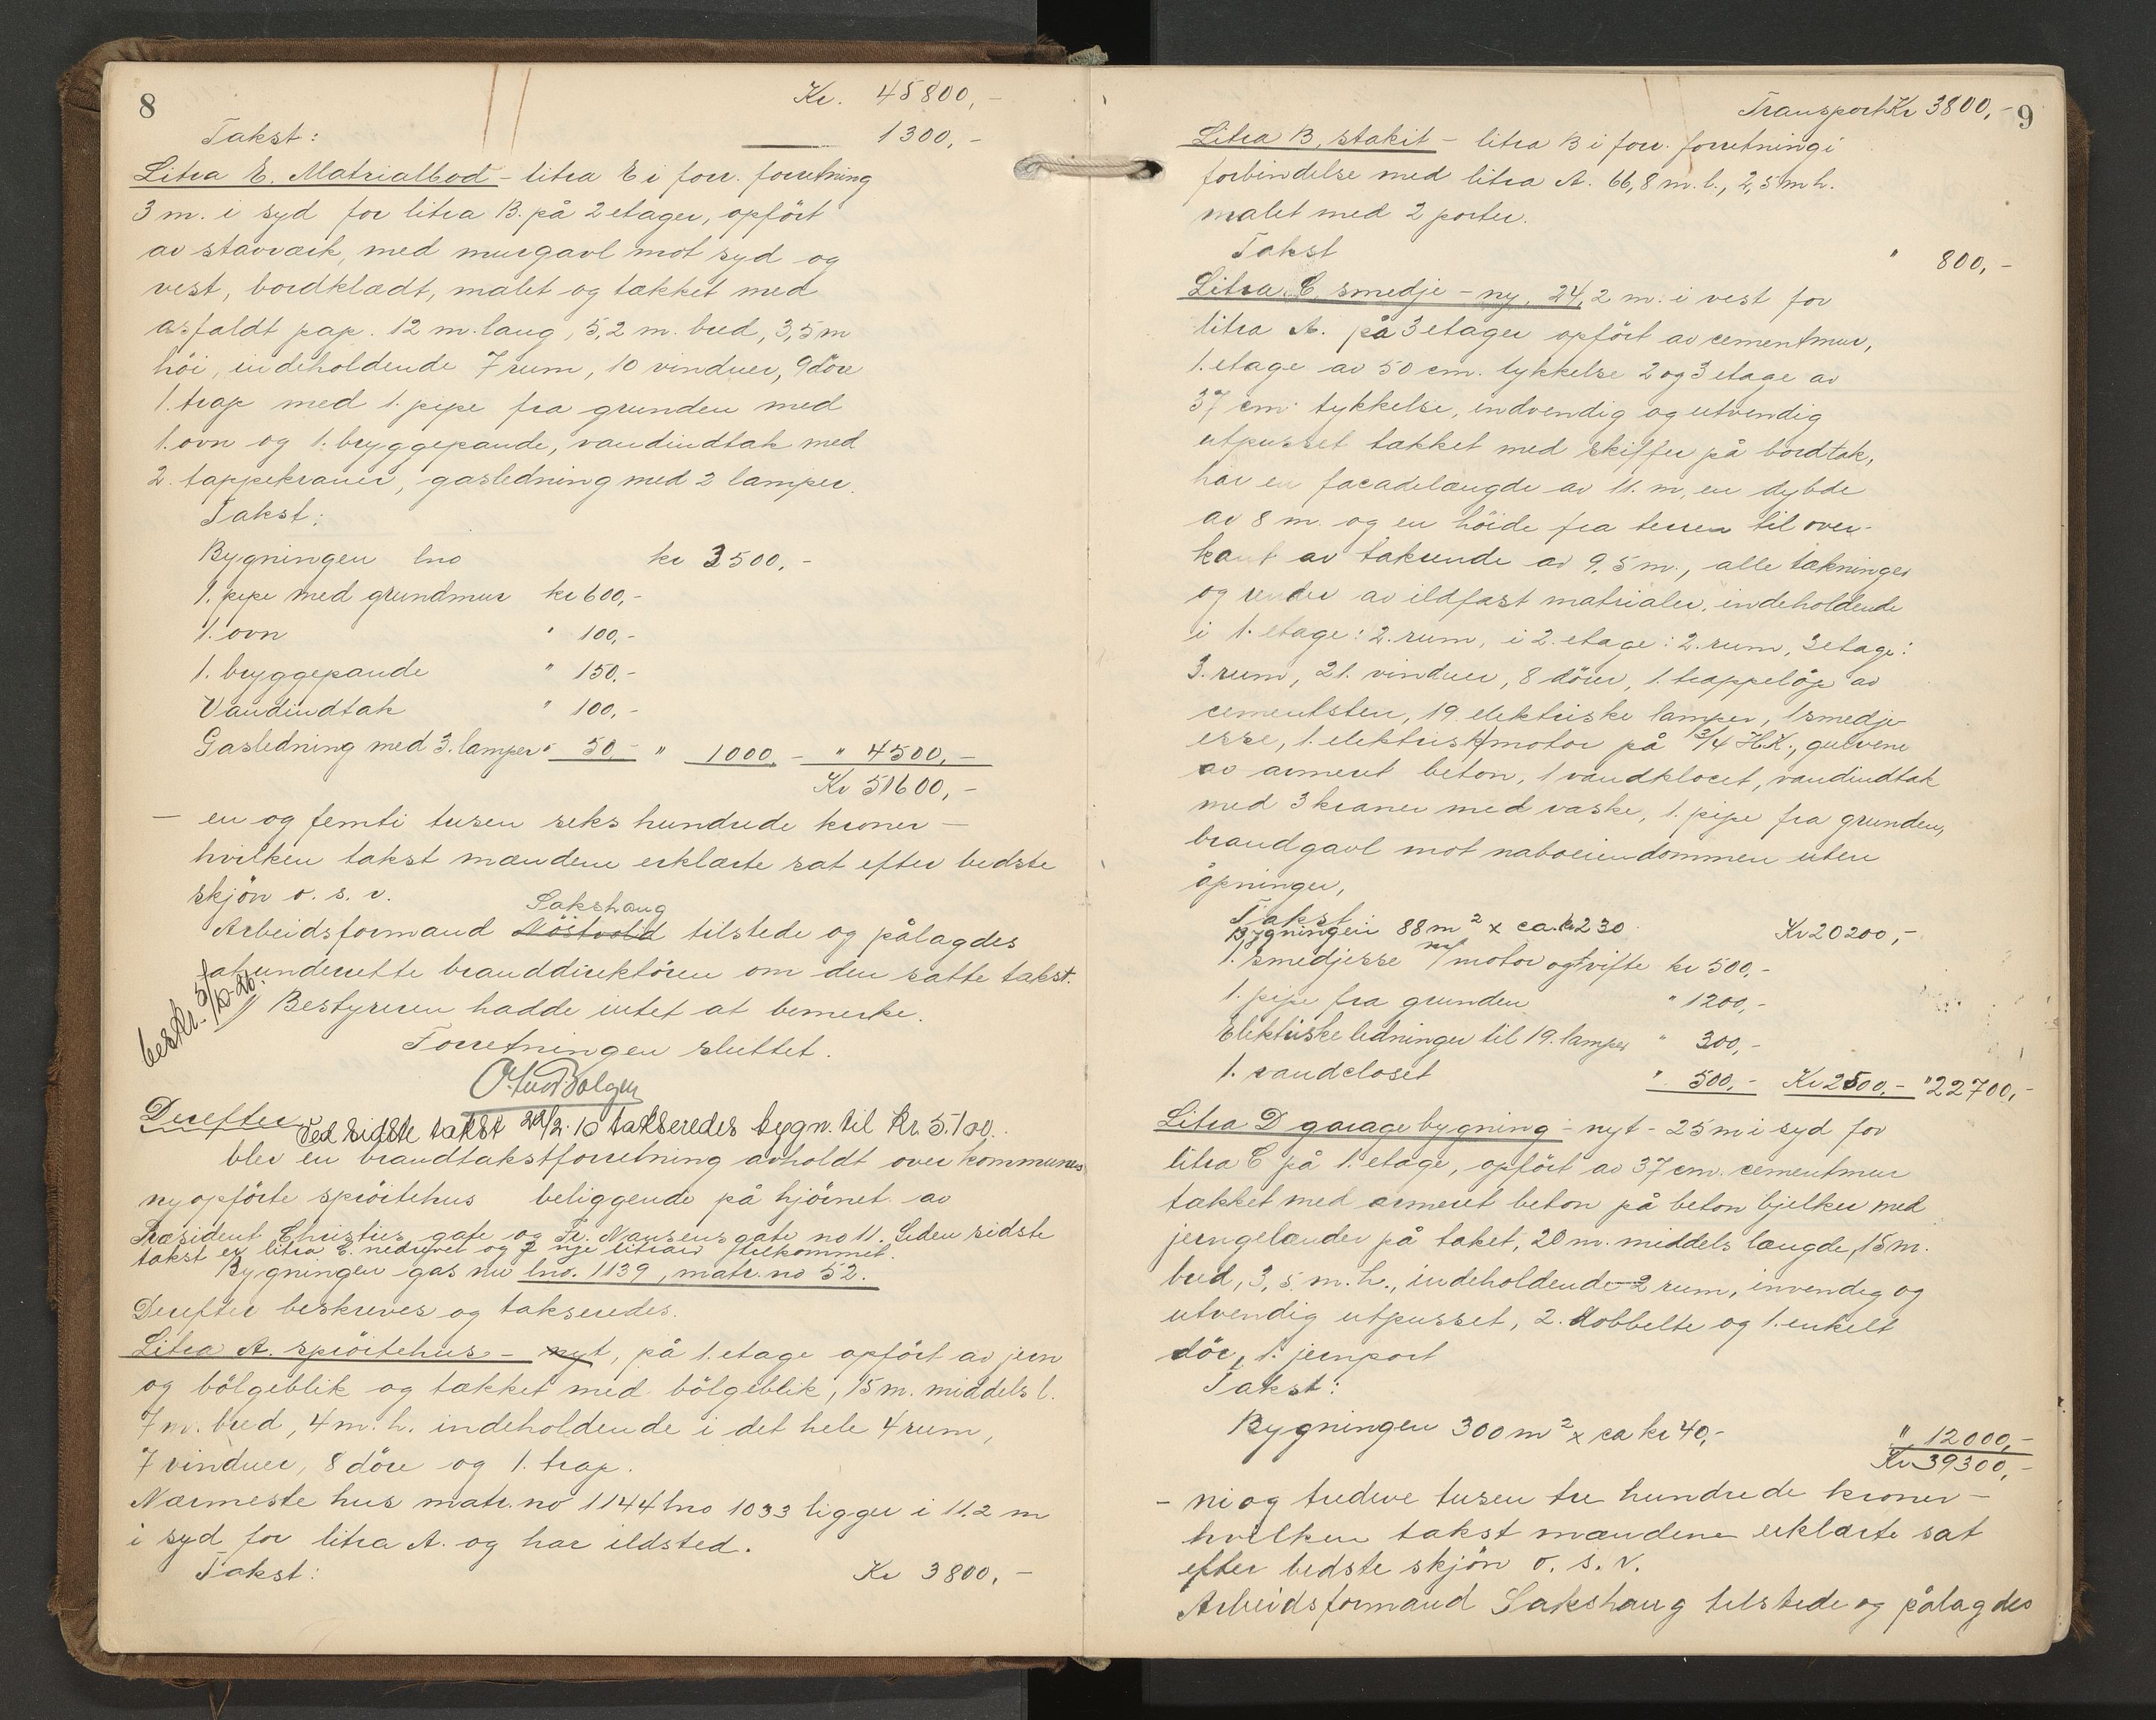 8
Kr. 45800,-
Takst: 1300,-
Litra E. Matrialbod - litra E i forr. forretning
3 m. i syd for litra B. på 2 etager, opført
av stavværk, med murgavl mot syd og
vest, bordklædt, malet og tækket med
asfaldt pap. 12 m. lang, 5,2 m. bred, 3,5 m
höi, indeholdende 7 rum, 10 vinduer, 9 döre
1. trap med 1. pipe fra grunden med
1. ovn og 1. bryggepande, vandindtak med
2. tappekraner, gasledning med 2 lamper.
Takst:
Bygningen lno kr 3500,-
1. pipe med grundmur kr 600,-
1. ovn " 100,-
1. bryggepande " 150.-
Vandindtak " 100,-
Gasledning med 3. lamper " 50,- " 1000 - " 4500,-
Kr 51600,-
- en og femti tusen seks hundrede kroner -
hvilken takst mændene erklærte sat efter bedste
skjön o. s. v.
Sakshaug
Arbeidsformand Nöstvold tilstede og pålagdes
at underrette branddirektören om den satte takst.
Bestyreren hadde intet at bemerke.
beskr. 5/10-20.
Forretningen sluttet.
Derefter
Ved sidste takst 22/2.10 takseredes bygn. til kr. 5.100.
blev en brandtakstforretning avholdt over kommunens
nyopförte spröitehus beliggende på hjörnet av
Præsident Christies gate og Fr. Nansens gate no 11. Siden sidste
takst er litra C. nedrevet og 2 nye litraer tilkommet.
Bygningen gas nu lno. 1139, matr. no 52.
Derefter beskreves og takseredes.
Litra A. spröitehus - nyt, på 1. etage opfört av jern
og bölgeblik og tækket med bölgeblik, 15 m. middels l.
7 m. bred, 4 m. h. indeholdende i det hele 4 rum,
7 vinduer, 8 döre og 1. trap.
Nærmeste hus matr. no 1144 lno 1033 ligger i 11.2 m
i syd for litra A. og har ildsted.
Takst: Kr 3800,-
Transport Kr 3800,- 9
Litra B, stakit - litra B i forr. forretning i
forbindelse med litra A. 66,8 m. l., 2,5 m h.
malet med 2 porter.
Takst " 800,-
Litra C, smedje - ny, 24,2 m. i vest for
litra A. på 3 etager opfört av cementmur,
1. etage av 50 cm. tykkelse 2 og 3 etage av
37 cm. tykkelse, indvendig og utvendig
utpusset tækket med skiffer på bordtak,
har en facadelængde av 11. m, en dybde
av 8 m. og en höide fra terren til over-
kant av takrende av 9,5 m., alle tækninger
og render av ildfast matrialer, indeholdende
i 1. etage: 2. rum, i 2. etage: 2. rum, 3 etage:
3. rum, 21. vinduer, 8 dörer, 1. trappelöp av
cementsten, 19. elektriske lamper, 1 smedje-
esse, 1. elektrisk motor på 3/4 H.K., gulvene
av armert beton, 1 vandklocet, vandindtak
med 3 kraner med vaske, 1. pipe fra grunden,
brandgavl mot naboeiendommen uten
åpninger,
Takst:
Bygningen: 88 m² x ca. kr 230 Kr 20200,-
1. smedjesse m/ motor og vifte kr 500,-
1. pipe fra grunden " 1200,-
Elektriske ledninger til 19. lamper " 300,-
1. vandcloset " 500,- Kr 2500,- " 22700,-
Litra D garage bygning - nyt - 25 m i syd for
litra C på 1. etage, opfört av 37 cm. cementmur
tækket med armeret beton på beton bjelker med
jerngelænder på taket, 20 m. middels længde, 15 m.
bred, 3,5 m. h., indeholdende 2 rum, invendig og
utvendig utpusset, 2. dobbelte og 1. enkelt
dör, 1. jernport
Takst:
Bygningen 300 m² x ca kr 40,- " 12000,-
Kr 39300,-
- ni og tredeve tusen tre hundrede kroner -
hvilken takst mændene erklærte sat
efter bedste skjön o. s. v.
Arbeidsformand Sakshaug tilstede og pålagdes